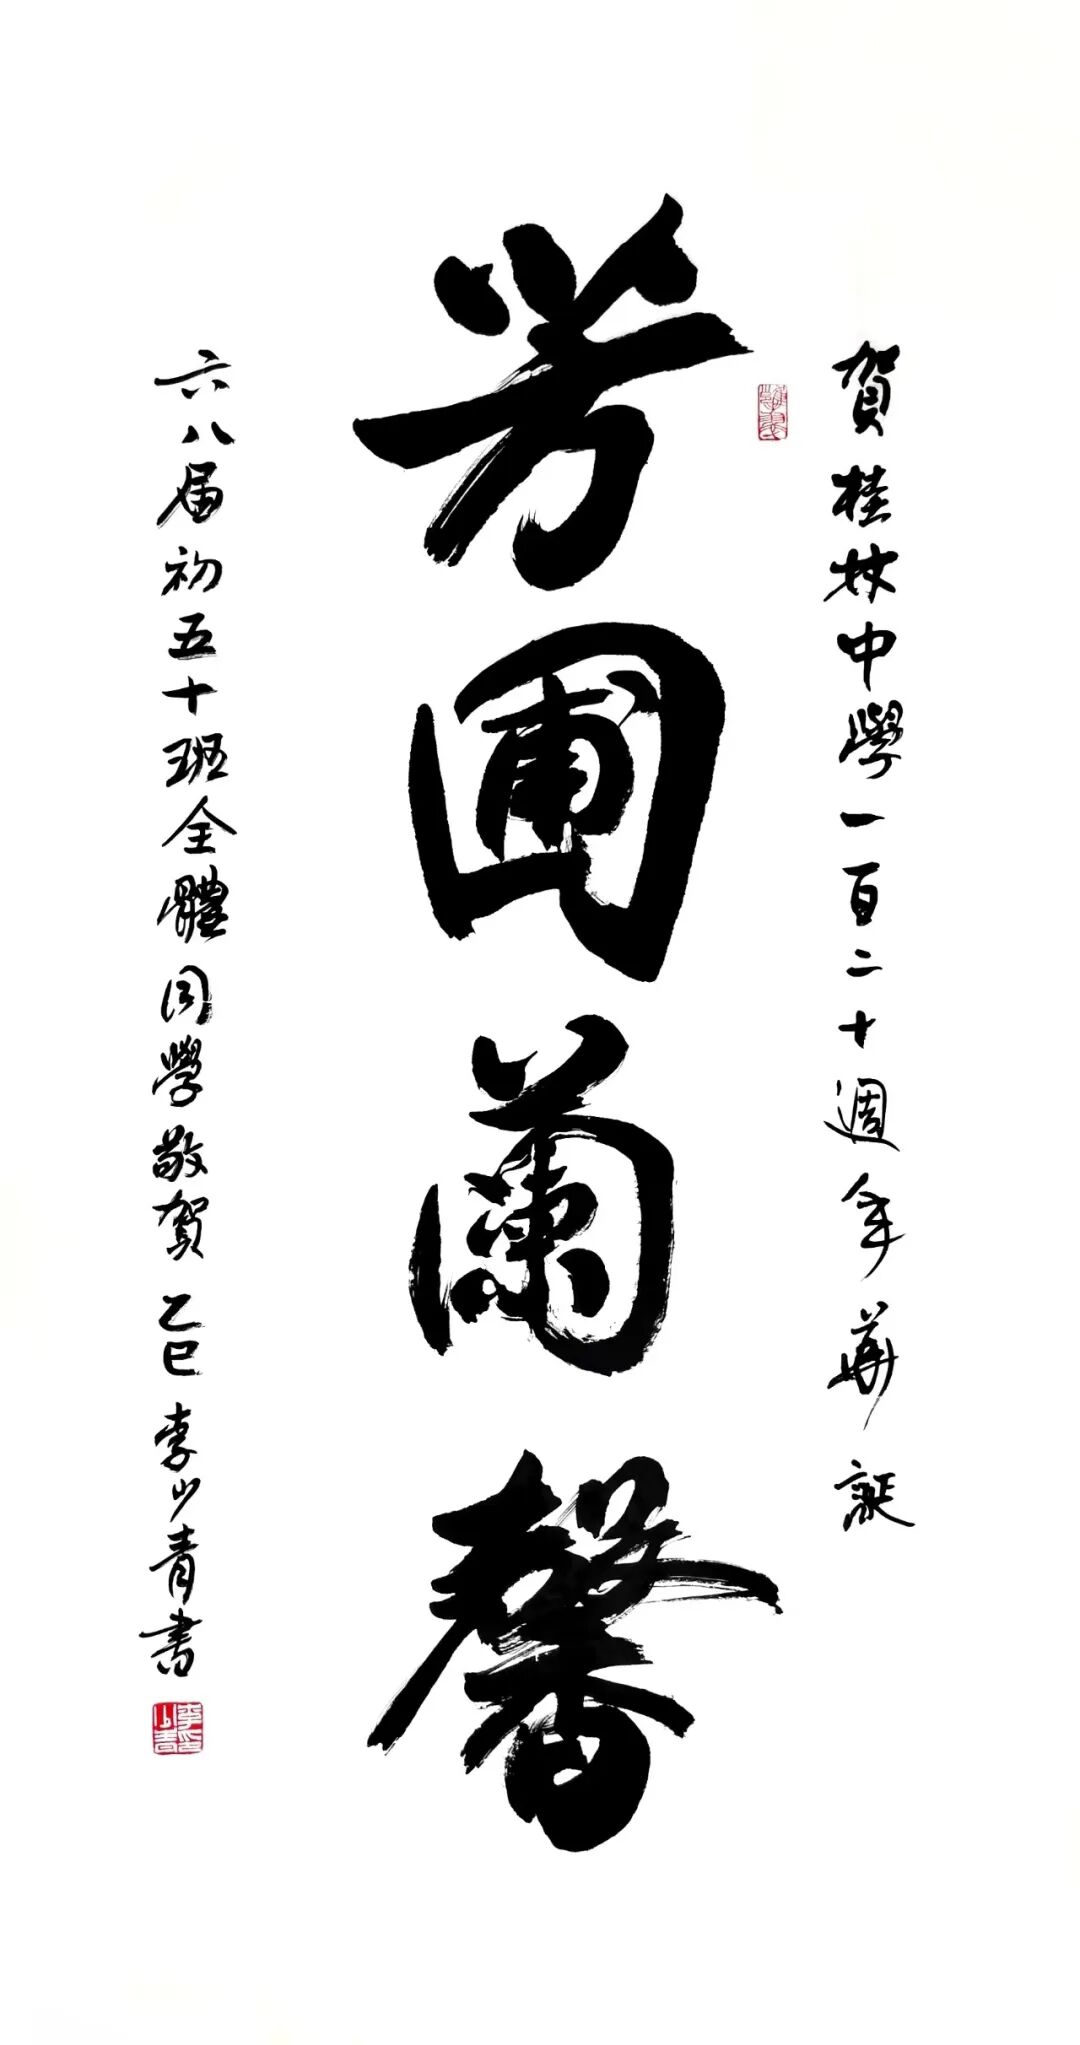 賀桂林中學一百二十週年華誕
芳圃蘭馨
六八届初五十班全體同學敬賀 乙巳 李少青書